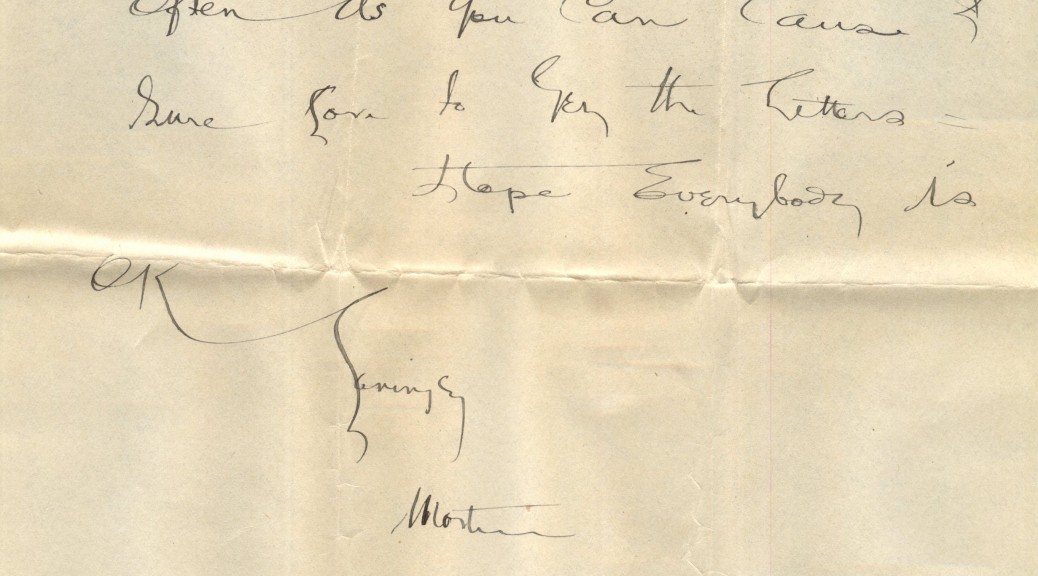 Often As You Can Cause I
Sure Love to Get the Letters =
Hope Everybody is
OK
Lovingly